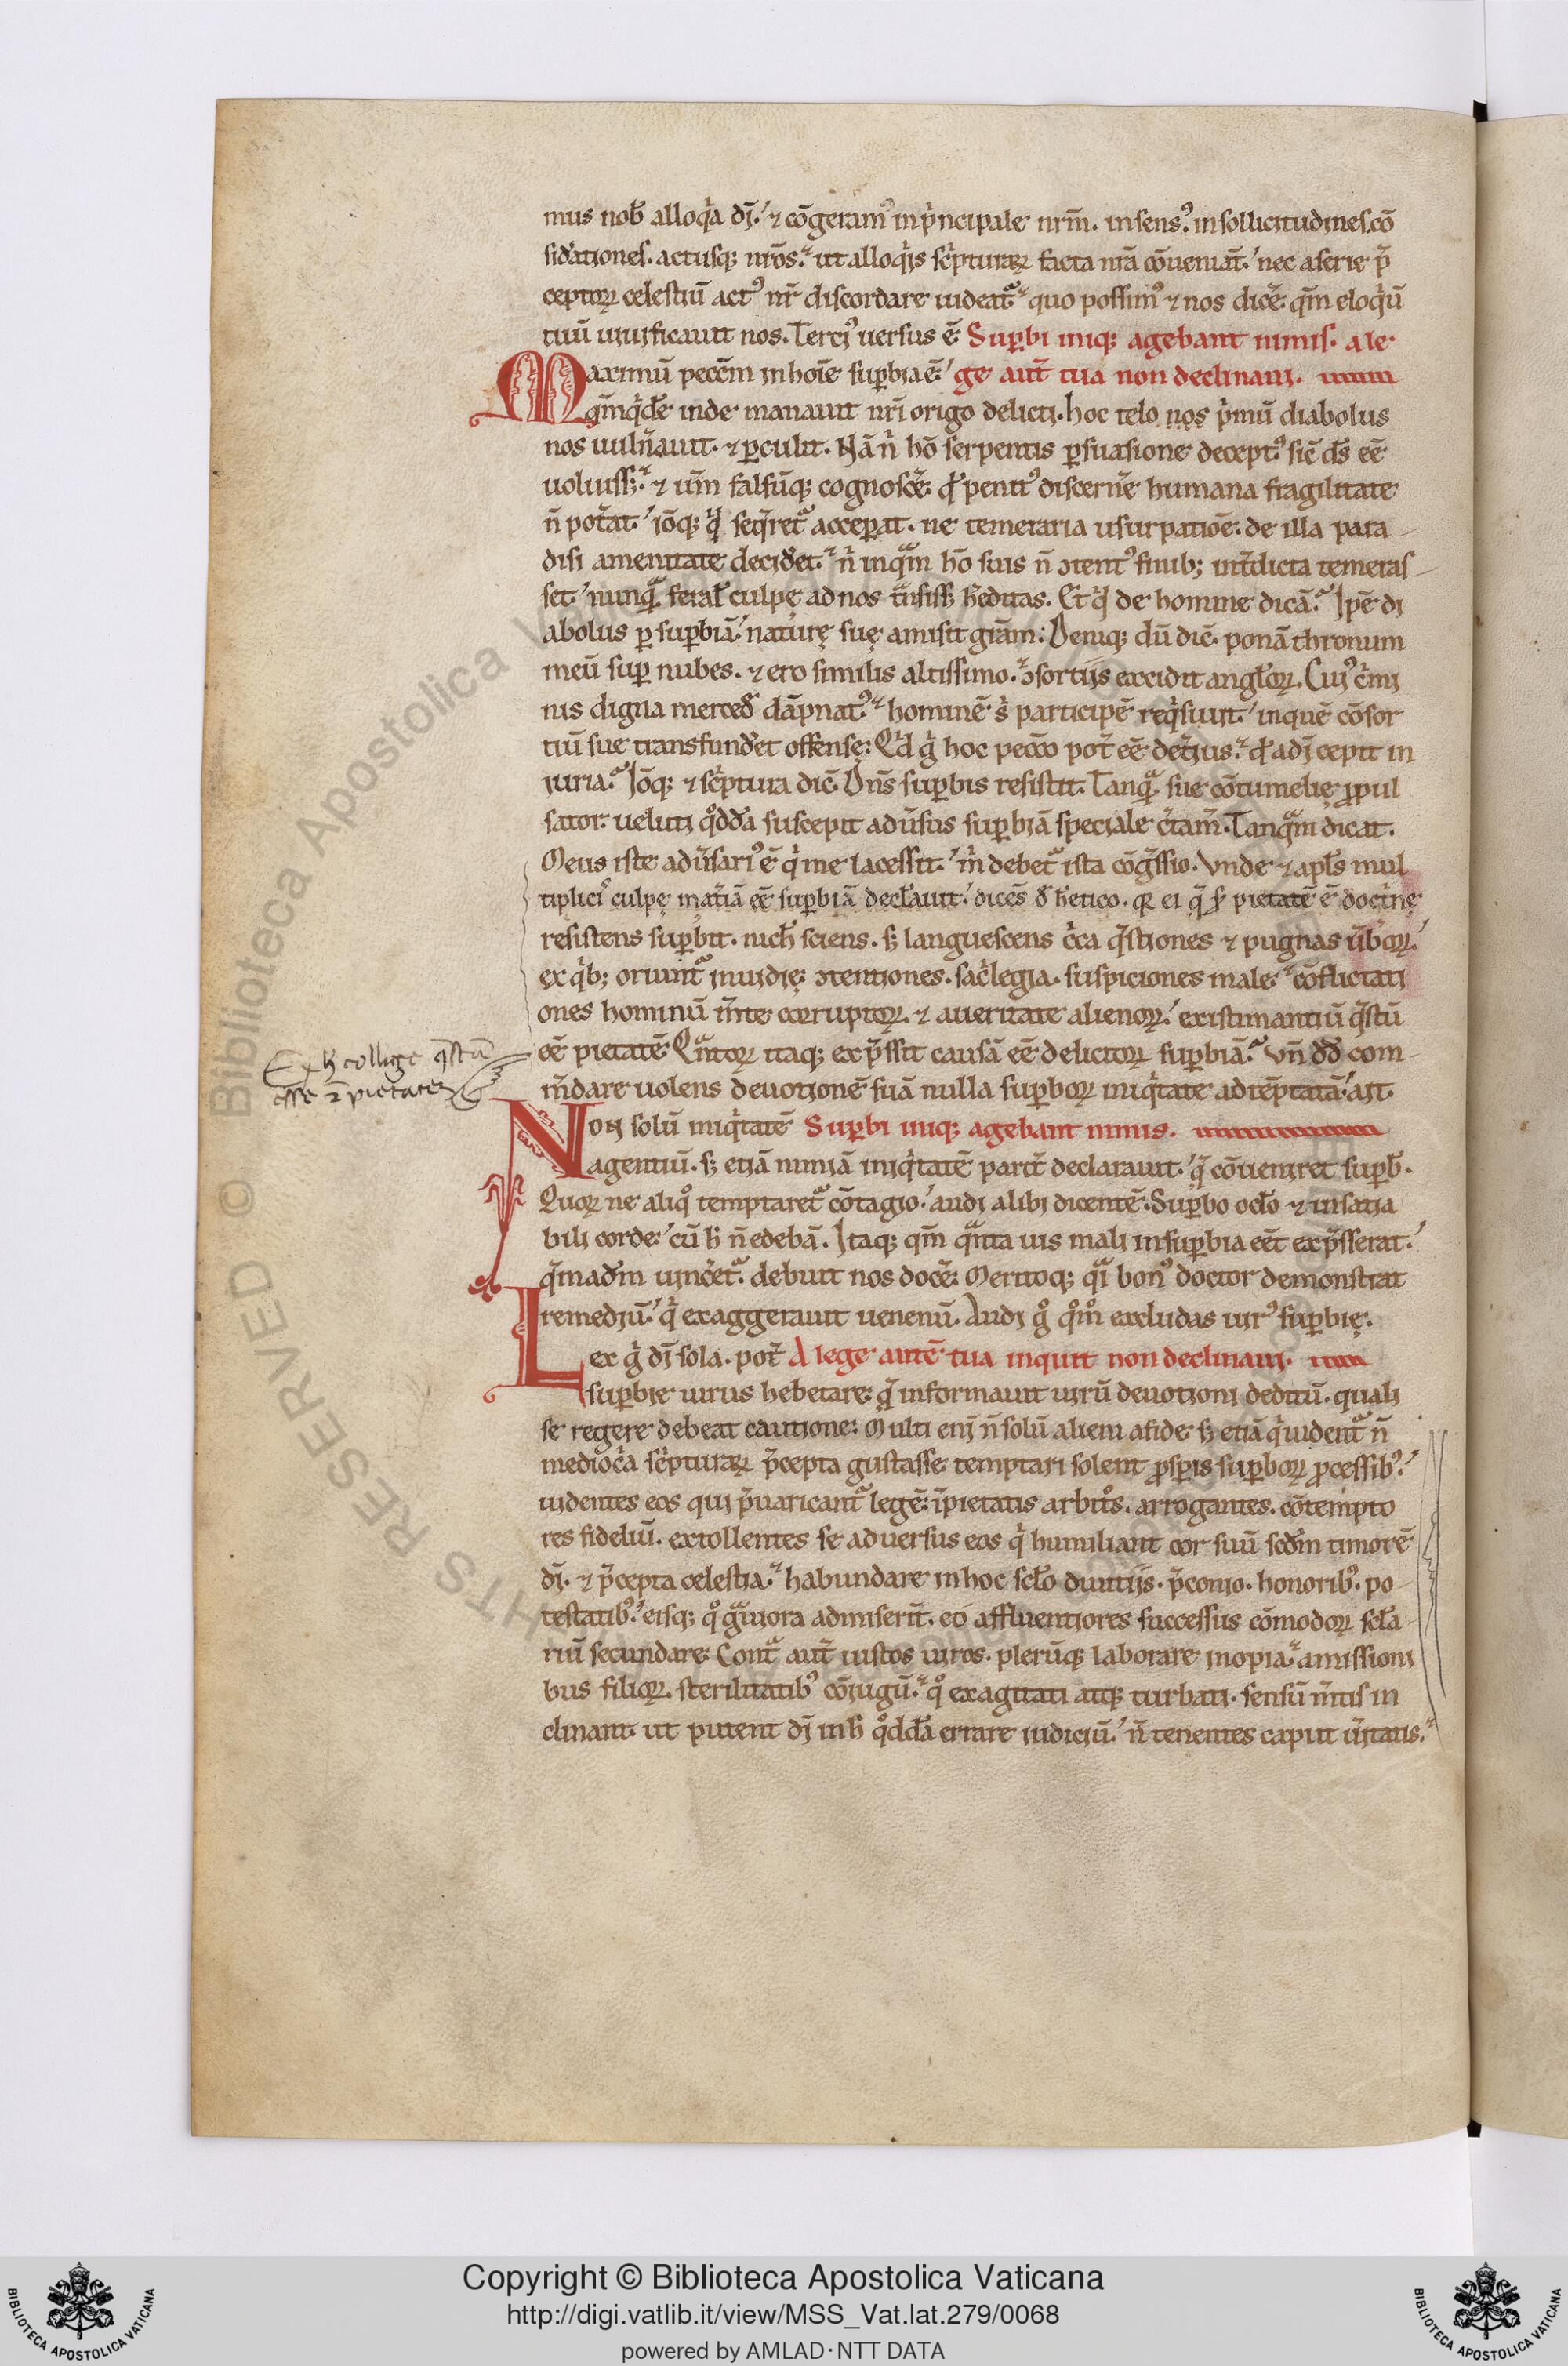 mus nob̄ alloq̇a dī. ⁊ cōgeram᷒ in pͥncipale nr̄m. in sens᷒. in sollicitudines. cō
sid̓ationes. actusq; nr̄os. ut alloqͥis scͥpturaꝝ facta nr̄a cōueniāt. nec a serie p̄
ceptoꝝ celestiū act᷒ nr̄ discordare uideat᷑ quo possim᷒ ⁊ nos dice᷑. qm̄ eloqͥū
tuū uiuificauit nos. Terci᷒ uersus ē. Suꝑbi iniq; agebant nimis. a le
Maximū pecc̄m in hoīe suꝑbia ē. ge aut̄ tua non declinaui.
qm̄qͥd̄e inde manauit nr̄i origo delicti. hoc telo nos pͥmū diabolus
nos uuln̄auit. ⁊ ꝑculit. Nā nͥ hō serpentis ꝑsuasione decept᷒ sic̄ ds̄ eē
uoluiss;. ⁊ um̄ falsūq; cognosce᷑. qđ penit᷒ discern̄e humana fragilitate
n̄ pot̄at. iōq; qđ seq̄ret᷑ acceꝑat. ne temeraria usurpatiōe. de illa para
disi amenitate decid̓et. nͥ inqᷓm hō suis n̄ ↄtent᷒ finib; int̓dicta temeras
set. nunqᷓ. feral̄ culpę ad nos t̓nsiss; h̓editas. Et qͥd de homine dicā. Ip̄e di
abolus ꝑ suꝑbiā. naturę suę amisit gr̄am. Deniq; dū dic̄. ponā thronum
meū suꝑ nubes. ⁊ ero similis altissimo. ↄsortiis excidit angl̄oꝝ. Cui᷒ cͥmi
nis digna merced̄ dāpnat᷒. hominē sͥ participē reqͥsiuit. in quē cōsor
tiū sue transfund̓et offensę. Qͥd gͦ hoc pecc̄o pot̄ eē det̓ius. qđ a dī cepit in
iuria. Iōq; ⁊ scͥptura dic̄. Dn̄s suꝑbis resistit. Tanqᷓ. sue cōtumelię ꝓpul
sator. ueluti qͦdd̄a suscepit adu̓sus suꝑbiā speciale c̓tam̄. Tanqᷓm dicat.
Meus iste adu̓sari᷒ ē qͥ me lacessit. mͥ debet᷑ ista cōg̓ssio. Vnde ⁊ apl̄s mul
tiplici᷒ culpę mat̓iā eē suꝑbiā decl̄auit. dicēs đ h̓etico. qꝛ ei q̄ s̄ pietatē ē doctͥnę
resistens suꝑbit. nich̄ sciens. s; languescens cͥca q̄stiones ⁊ pugnas u̓boꝝ.
ex qͥb; oriunt᷑ inuidię. ↄtentiones. sacͥlegia. suspiciones male. cōflictati
ones hominū m̄te corruptoꝝ. ⁊ a ueritate alienoꝝ. existimantiū q̄stū
eē pietatē. Qᷓntoꝝ itaq; exp̄ssit causā eē delictoꝝ suꝑbiā. Vn̄ dd̄ com
m̄dare uolens deuotionē suā nulla suꝑboꝝ iniqͥtate adtēptatā. ait.
Non solū iniqͥtatē Suꝑbi iniq; agebant nimis.
agentiū. s; etiā nimiā iniqͥtatē parit̓ declarauit. q̄ cōueniret suꝑb̄.
Quoꝝ ne aliqͦ temptaret᷑ cōtagio. audi alibi dicentē. Suꝑbo ocl̄o ⁊ insatia
bili corde. cū h̄ n̄ edebā. Itaq; qm̄ qᷓnta uis mali in suꝑbia eēt exp̄sserat.
q̄mad̄m uinc̓et᷑. debuit nos doce᷑. Meritoq; qᷓi bon᷒ doctor demonstrat
remediū. qͥ exaggerauit uenenū. Audi gͦ qͦm̊ excludas uir᷒ suꝑbię.
Lex gͦ dī sola. pot̄ A lege autē tua inquit non declinaui.
suꝑbie uirus hebetare. q̄ informauit uirū deuotioni deditū. quali
se regere debeat cautione. Multi eni n̄ solū alieni a fide s; etiā qͥ uident᷑ n̄
mediocͥa scͥpturaꝝ p̄cepta gustasse. temptari solent ꝓsꝑis suꝑboꝝ ꝓcessib᷒.
uidentes eos qui p̄uaricant᷑ legē. īpietatis arbitͦs. arrogantes. cōtempto
res fideliū. extollentes se aduersus eos qͥ humiliant cor suū scd̄m timorē
dī. ⁊ p̄cepta celestia. habundare in hoc scl̄o diuitiis. p̄conio. honorib᷒. po
testatib᷒. eisq; qͦ gᷓuiora admiserīt. eo affluentiores successus cōmodoꝝ scl̄a
riū secundare. Contᷓ aut̄ iustos uiros. plerūq; laborare inopia. amissioni
bus filioꝝ. sterilitatib᷒ cōiugū. qͦ exagitati atq; turbati. sensū m̄tis in
clinant. ut putent dī in h̄ qͦdd̄a errare iudiciū. n̄ tenentes caput u̓itatis.
Ex h̄ collige q̄stū
esse ⁊ pietatē
Copyright © Biblioteca Apostolica Vaticana
http://digi.vatlib.it/view/MSS_Vat.lat.279/0068
powered by AMLAD·NTT DATA
BIBLIOTECA APOSTOLICA VATICANA
BIBLIOTECA APOSTOLICA VATICANA